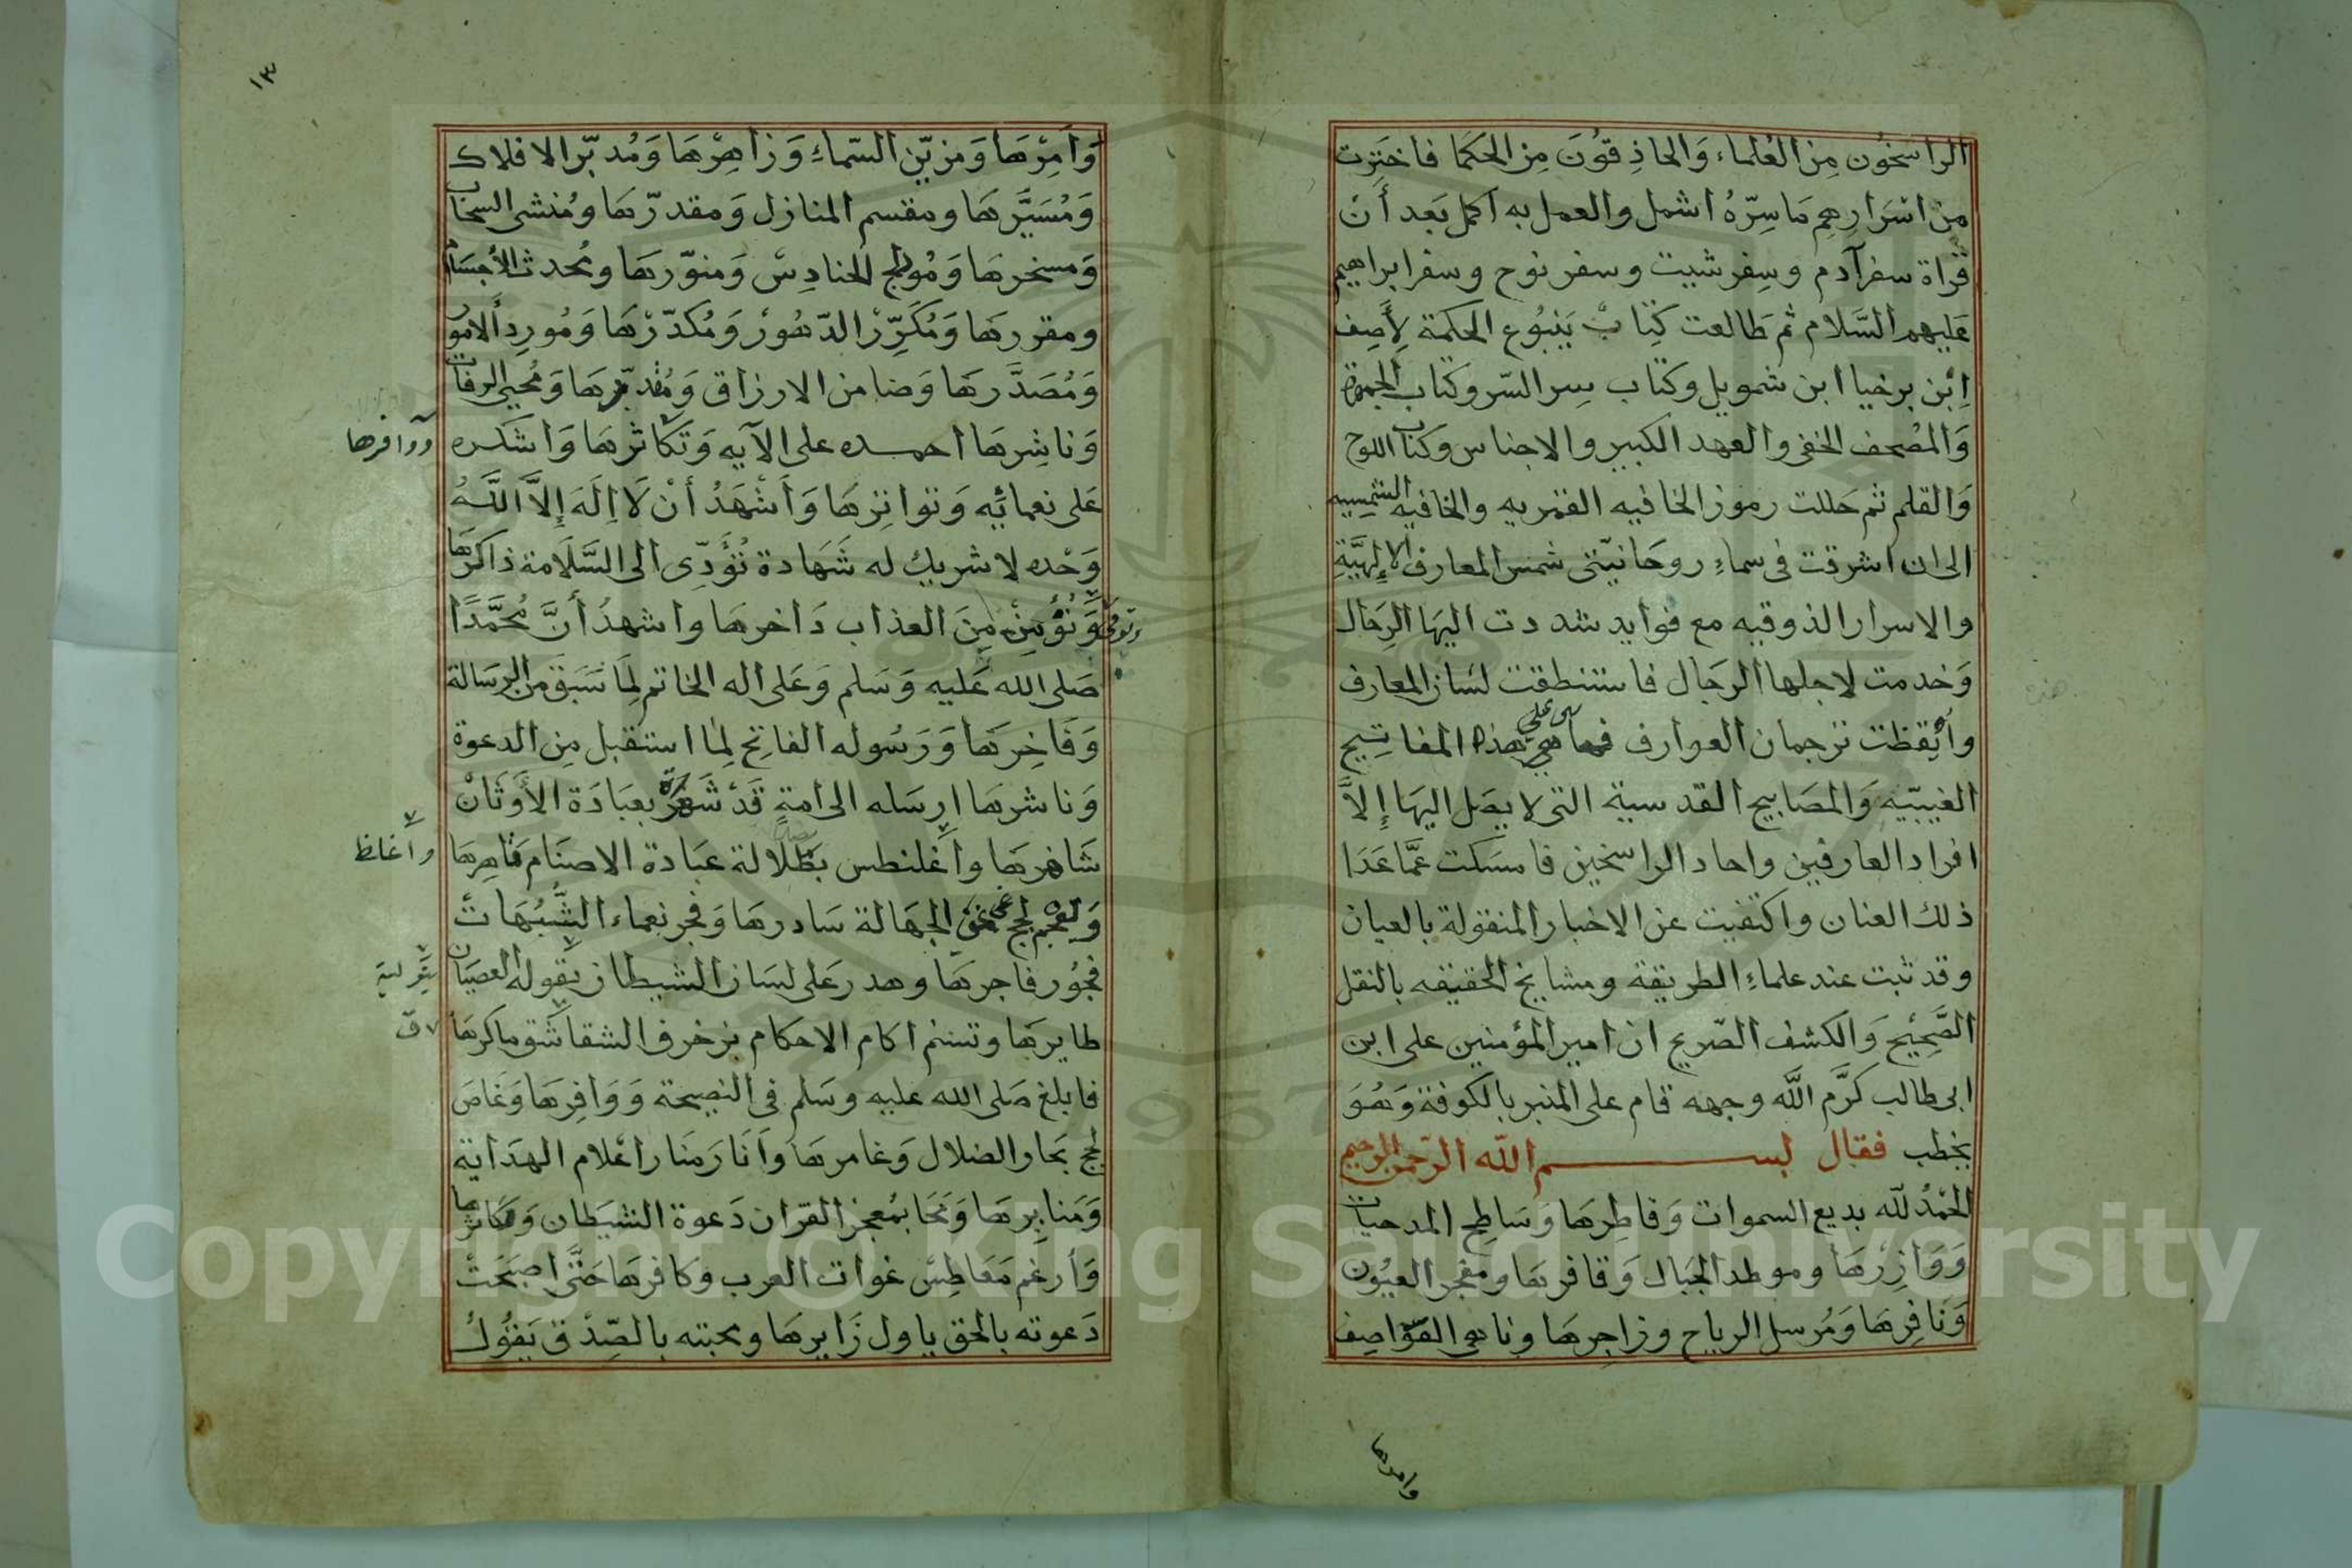 الراسخون من العلماء والحاذقون من الحكما فاخترت
من اسرارهم ما سره اشمل والعمل به اكمل بعد أن
قراة سفر آدم وسفر شيث وسفر نوح وسفر ابراهيم
عليهم السلام ثم طالعت كتاب ينبوع الحكمة لأصف
ابن برخيا ابن شمويل وكتاب سر السر وكتاب الجمهرة
والمصحف الخفي والعهد الكبير والاجناس وكتاب اللوح
والقلم ثم حللت رموز الخافيه القمريه والخافيه الشمسيه
الى ان اشرقت في سماء روحانيتى شمس المعارف الإلهية
والاسرار الذوقيه مع فوايد شددت اليها الرحال
وخدمت لاجلها الرجال فاستنطقت لسان المعارف
وأيقظت ترجمان العوارف هذه المفاتيح
الغيبيه والمصابيح القدسية التى لا يصل اليها إلا
افراد العارفين واحاد الراسخين فامسكت عما عدا
ذلك العنان واكتفيت عن الاخبار المنقولة بالعيان
وقد ثبت عند علماء الطريقة ومشايخ الحقيقه بالنقل
الصحيح والكشف الصريح ان امير المؤمنين على ابن
ابى طالب كرم الله وجهه قام على المنبر بالكوفة وهو
يخطب فقال بسم الله الرحمن الرحيم
الحمد لله بديع السموات وفاطرها وساطح المدحيات
ووازرها وموطد الجبال وقافرها ومفجر العيون
ونافرها ومرسل الرياح وزاجرها وناهى القواصف
وامرها
١٣
وآمرها ومزين السماء وزاهرها ومدبر الافلاك
ومسيرها ومقسم المنازل ومقدرها ومنشى السحاب
ومسخرها ومولج الحنادس ومنورها ومحدث الأجسام
ومقررها ومكرر الدهور ومكدرها ومورد ألامور
ومصدرها وضامن الارزاق ومدبرها ومحيى الرفات
وناشرها احمده على الآيه وتكاثرها واشكره
ووافرها
على نعمائه وتواترها وأشهد أن لا اله إلا الله
وحده لا شريك له شهادة تؤدى الى السلامة ذاكرها
وتؤمن من العذاب داخرها واشهد أن محمدا
صلى الله عليه وسلم وعلى اله الخاتم لما سبق من الرسالة
وفاخرها ورسوله الفاتح لما استقبل من الدعوة
وناشرها ارسله الى امة قد شعر بعبادة الأوثان
شاعرها واغلنطس بظلالة عبادة الاصنام قاهرها
واغلظ
لجج الجهالة سادرها وفجر نعماء الشبهات
فجور فاجرها وهدر على لسان الشيطان بقوله العصيان
طايرها وتسنم اكام الاحكام بزخرف الشقاشق ماكرها
فابلغ صلى الله عليه وسلم في النصيحة ووافرها وغاص
لجج بحار الضلال وغامرها وأنار منار اعلام الهداية
ومنابرها ومحا بمعجز القران دعوة الشيطان ومكاثرها
وأرغم معاطس غوات العرب وكافرها حتى اصبحت
دعوته بالحق باول زايرها ومحبته بالصدق يقول
Copyright © King Saud University
1957